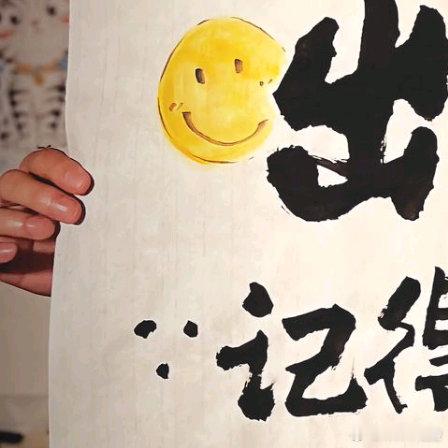 出
记得